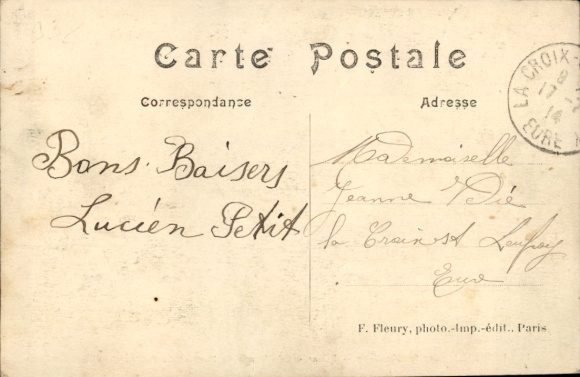 Carte Postale
Correspondance
Adresse
Bons Baisers
Lucien Petit
Mademoiselle
Jeanne Dié
la Croix St Leufroy
Eure
LA CROIX-
9
17 -
14
EURE
F. Fleury, photo.-Imp.-édit.. Paris